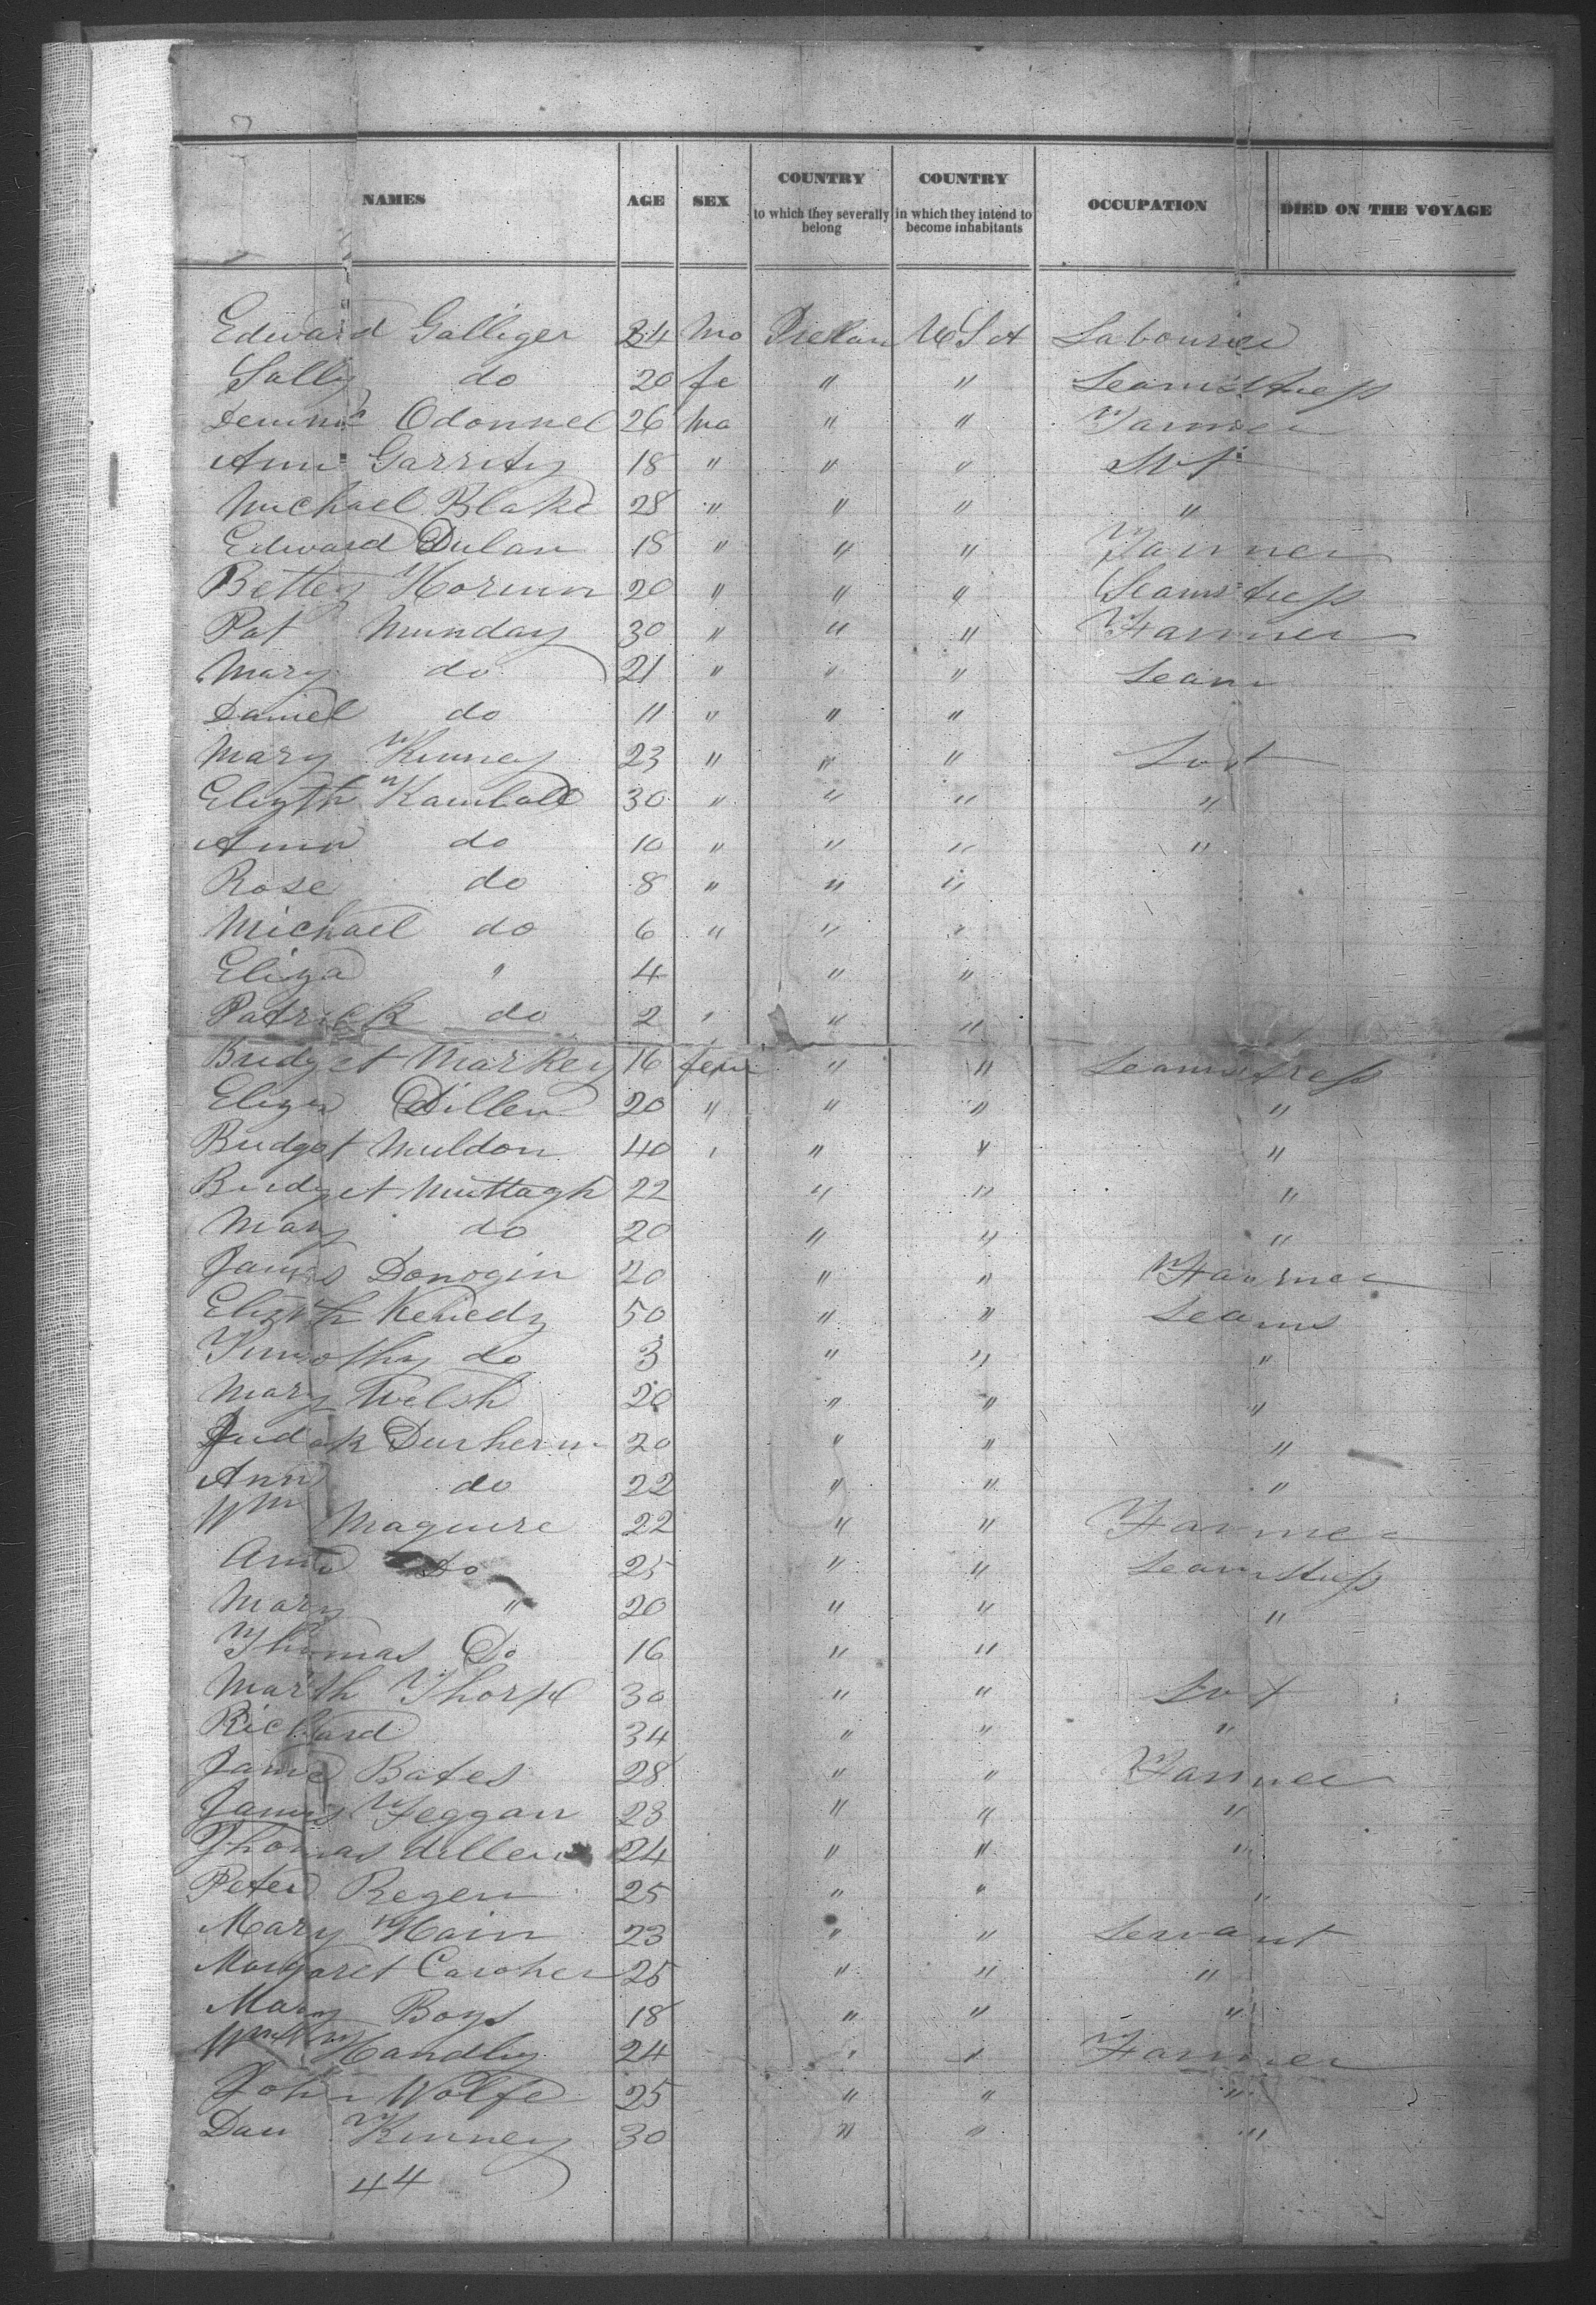 NAMES AGE SEX COUNTRY to which they severally belong COUNTRY in which they intend to become inhabitants OCCUPATION DIED ON THE VOYAGE
Edward Galliger 34 Ma Irelan U S A Labourer
Sally do 20 fe " " Seamstress
Dominic Odonnel 26 Ma " " Farmer
Ann Garrity 18 " " " Svt
Michael Blake 28 " " " "
Edward Dulan 18 " " " Farmer
Bettey 20 " " " Seamstress
Pat Munday 30 " " " Farmer
Mary do 21 " " " Seam
Daniel do 11 " " "
Mary Kinney 23 " " " Svt
Elizth 30 " " " "
Ann do 10 " " " "
Rose do 8 " " "
Michael do 6 " " "
Eliza " 4 " "
Patrick do 2 " " "
Bridget Markey 16 fem " " Seamstress
Eliza Dillen 20 " " " "
Bridget Muldon 40 " " " "
Bridget Muttagh 22 " " "
Mary do 20 " " "
James Donogin 20 " " Farmer
Elizth Keniedy 50 " " Seams
Timothy do 3 " " "
Mary Welsh 20 " " "
Judah 20 " " "
Ann do 22 " " "
Wm Maguire 22 " " Farmer
Ann Do 25 " " Seamstress
Mary " 20 " " "
Thomas Do 16 " "
Marth Thorp 30 " " Svt
Richard 34 " " "
James Bates 28 " " Farmer
James Feggan 23 " " "
Thomas dillen 24 " " "
Peter Regen 25 " " "
Mary Hain 23 " " Servant
Margaret Caroher 25 " " "
Mary Boys 18 " " "
Wm Handly 24 " " Farmer
John Wolfe 25 " " "
Dan Kinney 30 " " "
44